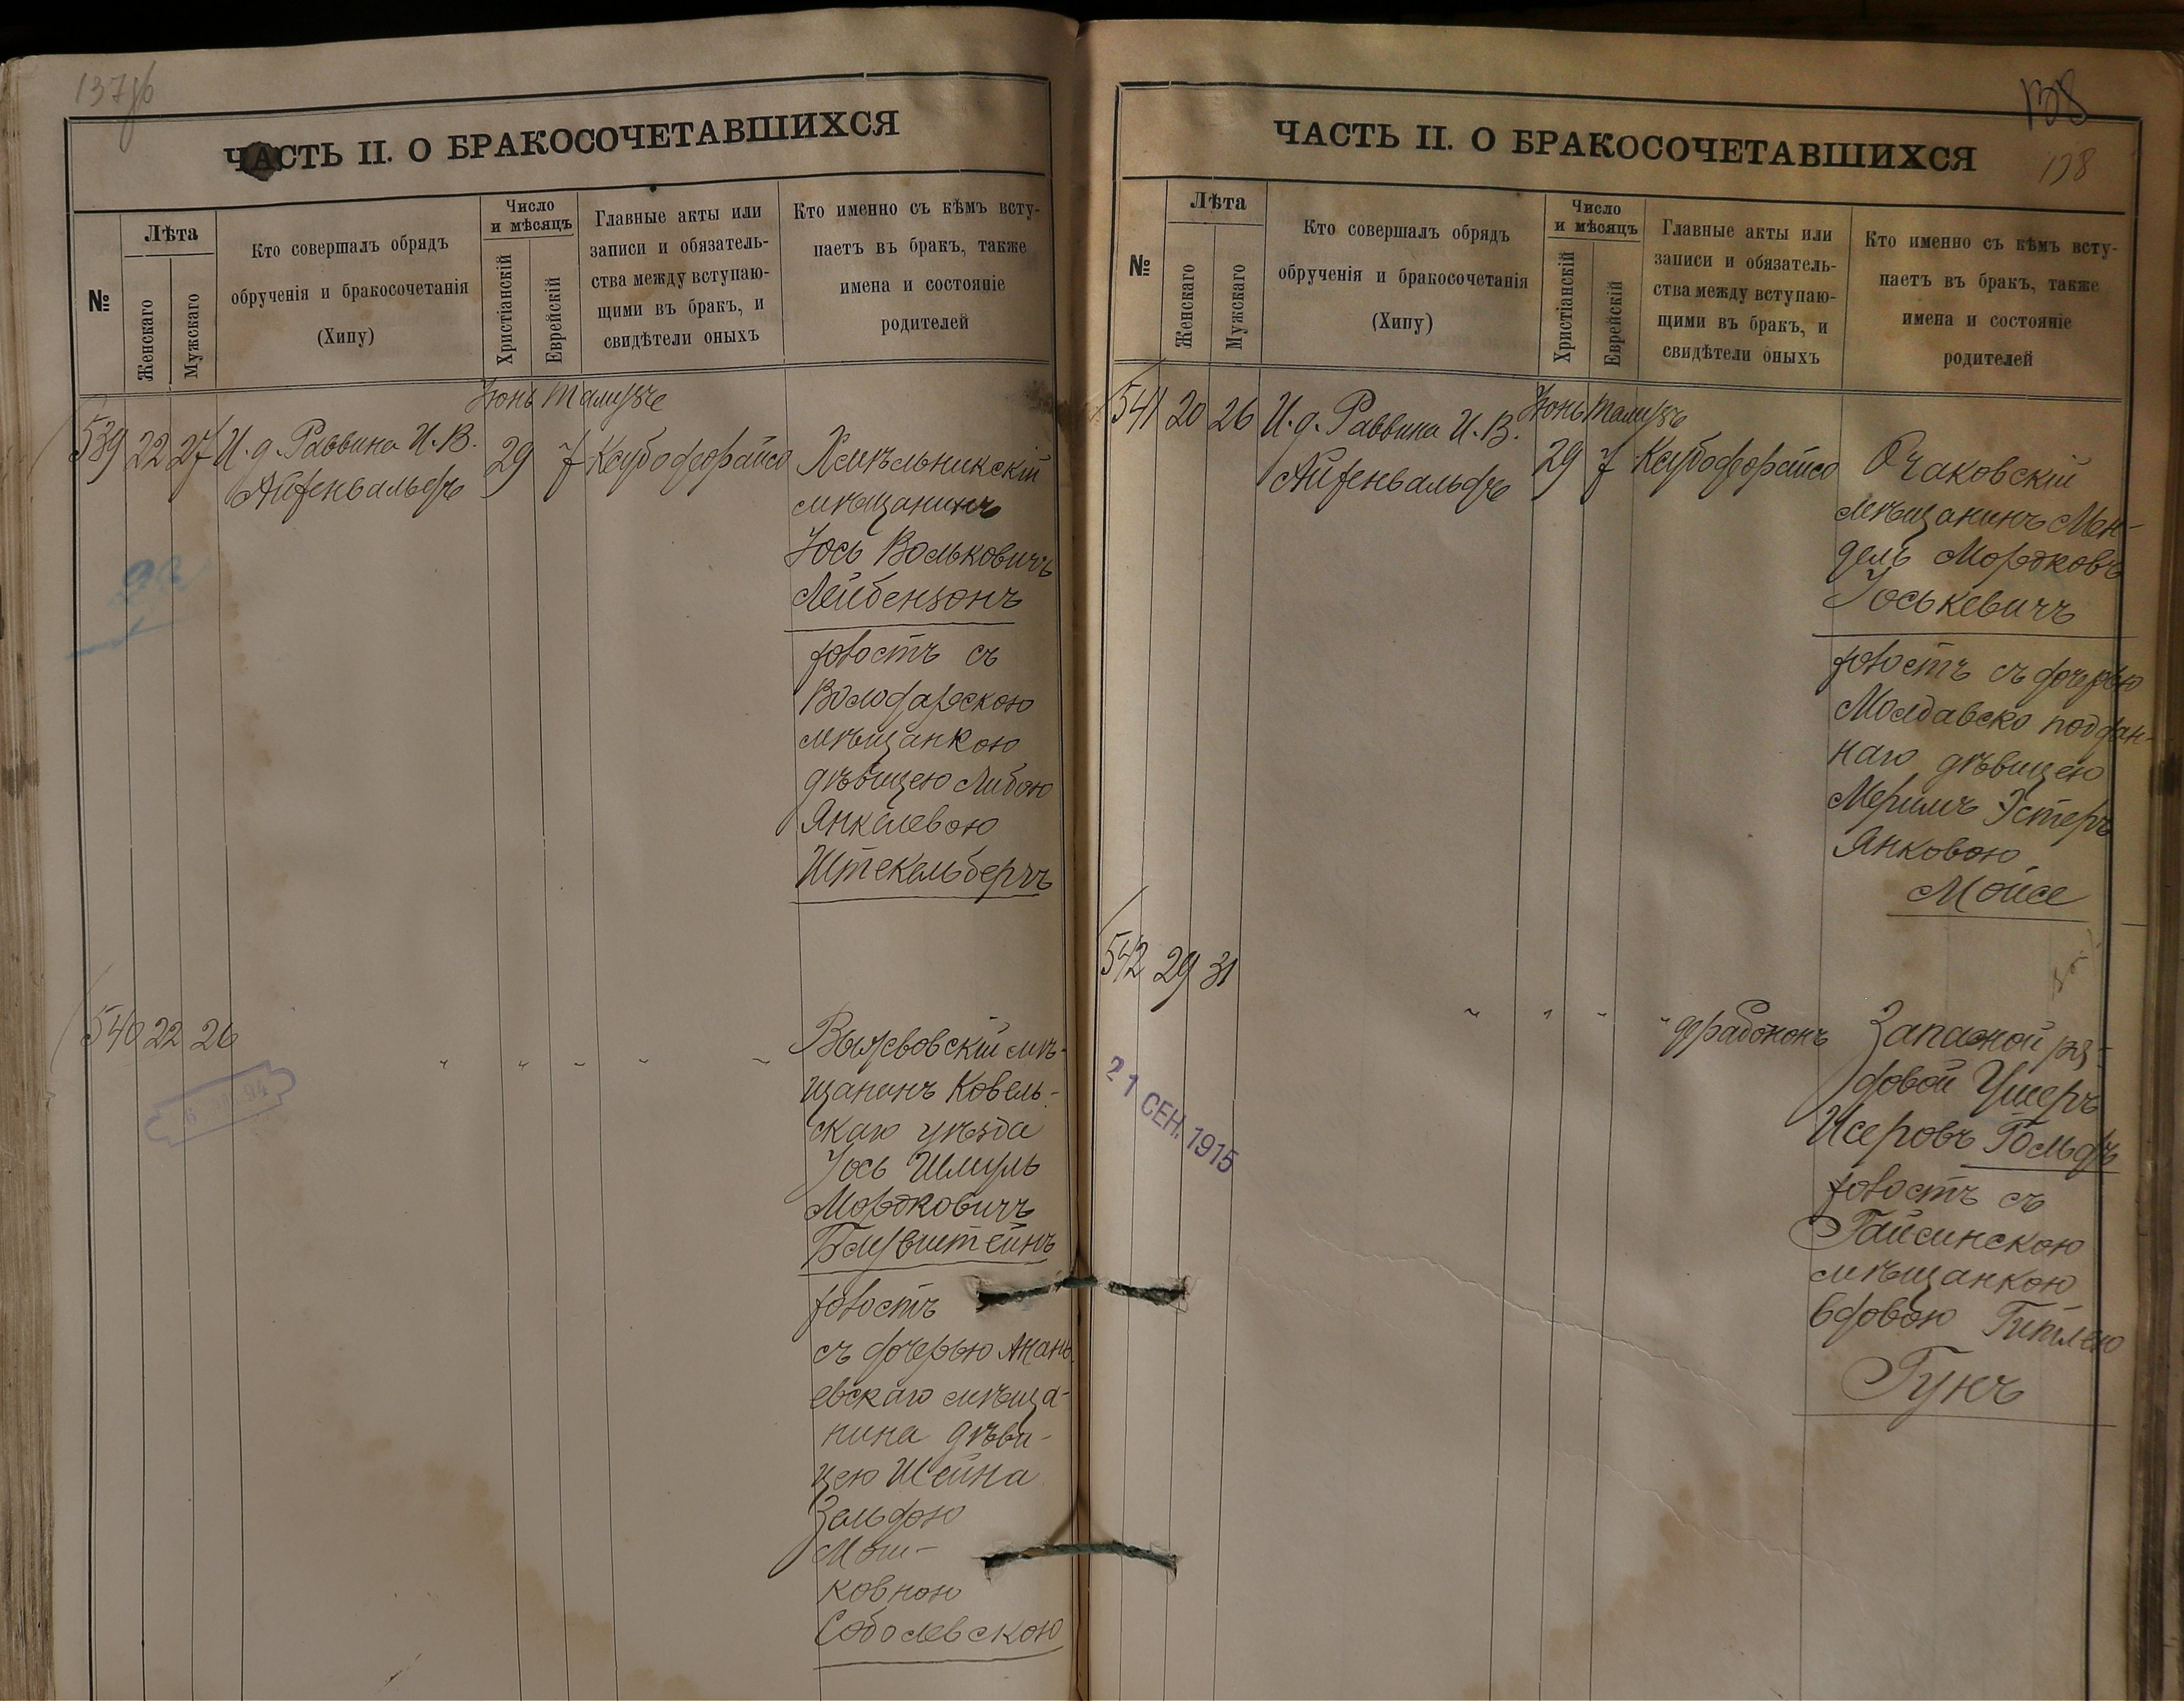 137об
ЧАСТЬ II. О БРАКОСОЧЕТАВШИХСЯ
№
Лѣта
Женскаго
Мужскаго
Кто совершалъ обрядъ
обрученія и бракосочетанія
(Хипу)
Число
и мѣсяцъ
Христіанскій
Еврейскій
Главные акты или
записи и обязатель-
ства между вступаю-
щими въ бракъ, и
свидѣтели оныхъ
Кто именно съ кѣмъ всту-
паетъ въ бракъ, также
имена и состояніе
родителей
Іюнь Тамузъ
539 22 27 И. д. Раввина И. В.
Айзенвальдъ
29 7
Хмѣльникскій
мѣщанинъ
Іось Вольковичъ
Лейбензонъ
холостъ съ
Володарскою
мѣщанкою
дѣвицею Либою
Янкелевою
Штекельбергъ
540 22 26
Выжевовскій мѣ-
щанинъ Ковель-
скаго уѣзда
Іось Шмуль
Мордковичъ
Баувштейнъ
холостъ
съ дочерью Анань-
евскаго мѣща-
нина дѣви-
цею Шейна
Зельдою
Мош-
ковною
Соболевскою
138
138
ЧАСТЬ II. О БРАКОСОЧЕТАВШИХСЯ
№
Лѣта
Женскаго
Мужскаго
Кто совершалъ обрядъ
обрученія и бракосочетанія
(Хипу)
Число
и мѣсяцъ
Христіанскій
Еврейскій
Главные акты или
записи и обязатель-
ства между вступаю-
щими въ бракъ, и
свидѣтели оныхъ
Кто именно съ кѣмъ всту-
паетъ въ бракъ, также
имена и состояніе
родителей
Іюнь Тамузъ
541 20 26 И. д. Раввина И. В.
Айзенвальдъ
29 7
Очаковскій
мѣщанинъ Мен-
дель Мордковъ
Іоськевичъ
холостъ съ дочерью
Молдавско поддан-
наго дѣвицею
Меримъ Эстеръ
Янковою
Мойсе
542 29 31
дерабононъ
Запасной ря-
довой Ушеръ
Исеровъ Гольдъ
холостъ съ
Гайсинскою
мѣщанкою
вдовою Гитлею
Гукъ
21 СЕН. 1915